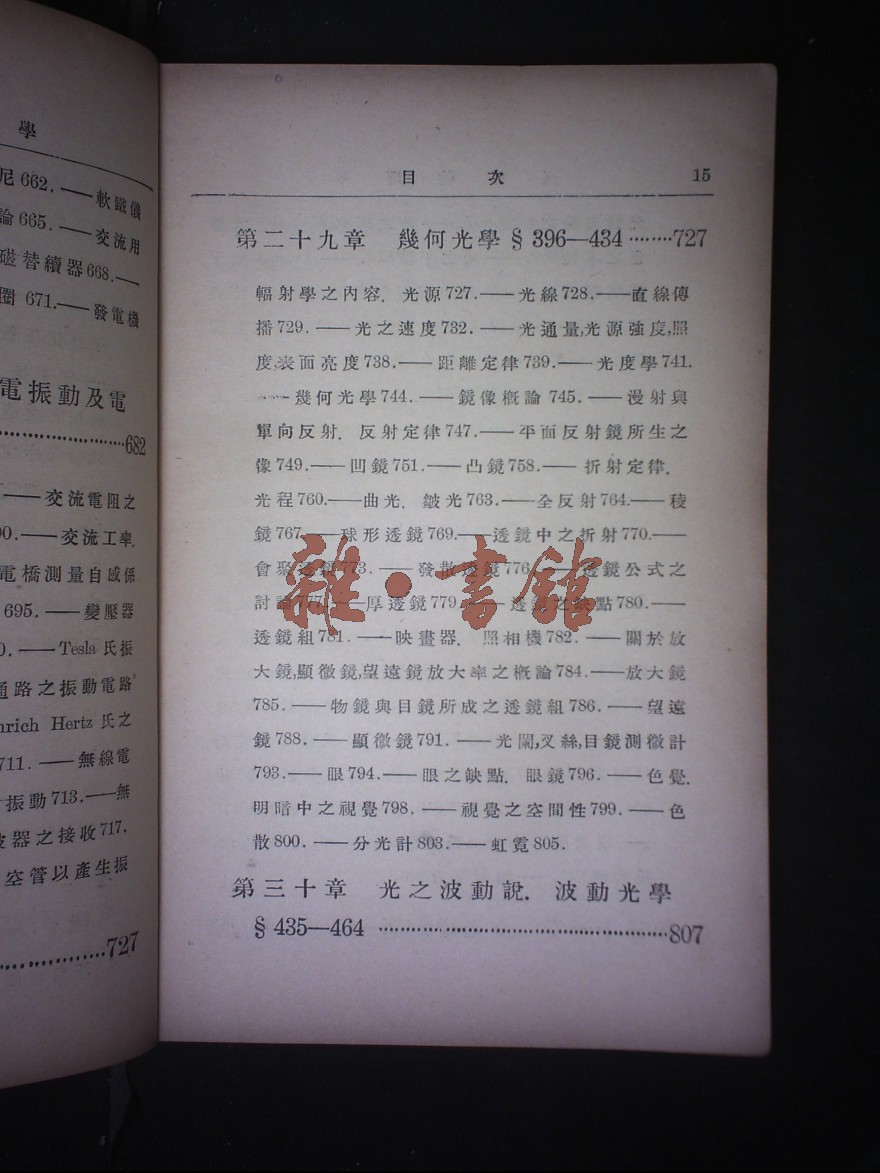 學
尼 662. —— 軟鐵儀
論 665. —— 交流用
磁替續器 668. ——
圈 671. —— 發電機
電振動及電
························682
—— 交流電阻之
00. —— 交流工率.
電橋測量自感係
695. —— 變壓器
0. —— Tesla 氏振
通路之振動電路
nrich Hertz 氏之
711. —— 無線電
振動 713. —— 無
波器之接收 717.
空管以產生振
····················727
目 次 15
第二十九章 幾何光學 § 396—434 ········727
輻射學之內容. 光源 727. —— 光線 728. —— 直線傳
播 729. —— 光之速度 732. —— 光通量,光源強度,照
度,表面亮度 738. —— 距離定律 739. —— 光度學 741.
—— 幾何光學 744. —— 鏡像概論 745. —— 漫射與
單向反射. 反射定律 747. —— 平面反射鏡所生之
像 749. —— 凹鏡 751. —— 凸鏡 758. —— 折射定律.
光程 760. —— 曲光. 皺光 763. —— 全反射 764. —— 稜
鏡 767. —— 球形透鏡 769. —— 透鏡中之折射 770. ——
會聚透鏡 773. —— 發散透鏡 776. —— 透鏡公式之
討論 777. —— 厚透鏡 779. —— 透鏡之缺點 780. ——
雜·書館
透鏡組 781. —— 映畫器. 照相機 782. —— 關於放
大鏡,顯微鏡,望遠鏡放大率之概論 784. —— 放大鏡
785. —— 物鏡與目鏡所成之透鏡組 786. —— 望遠
鏡 788. —— 顯微鏡 791. —— 光闌,叉絲,目鏡測微計
793. —— 眼 794. —— 眼之缺點. 眼鏡 796. —— 色覺.
明暗中之視覺 798. —— 視覺之空間性 799. —— 色
散 800. —— 分光計 803. —— 虹霓 805.
第三十章 光之波動說. 波動光學
§ 435—464 ················································807